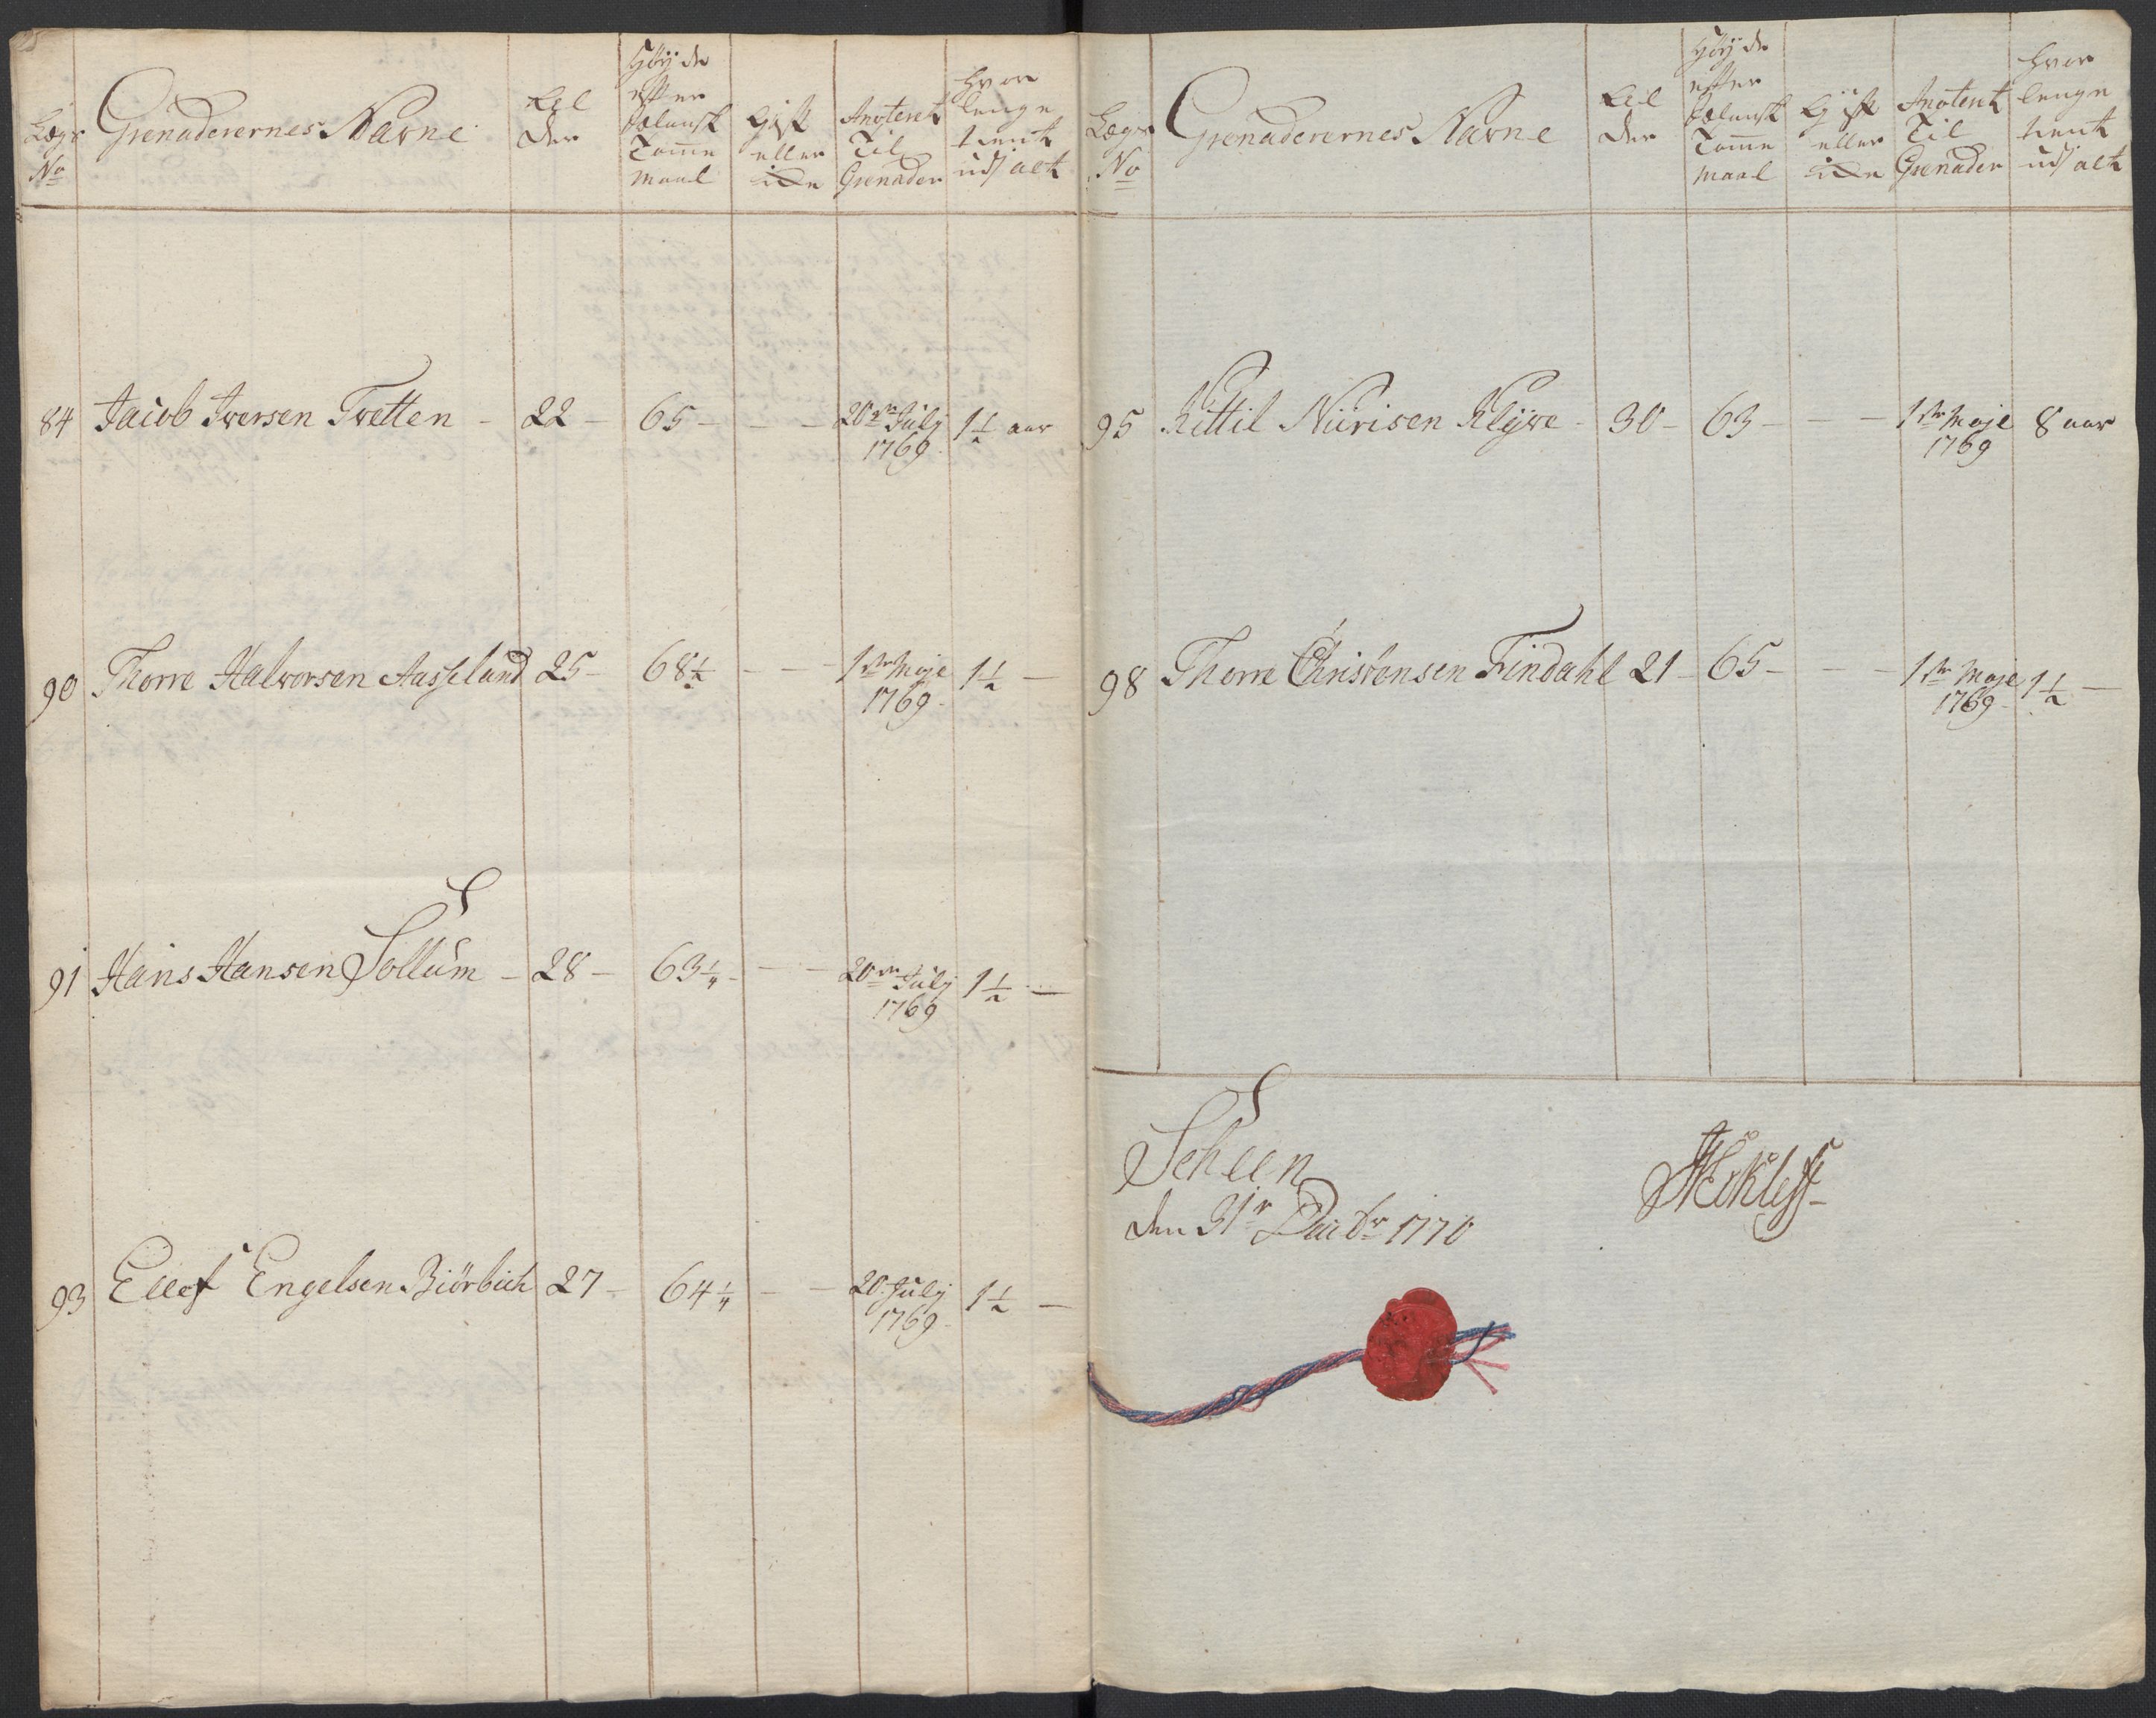 Lægs No
Grenaderernes Navne
Al der
Høÿde efter Sælansk Tomme maal
Gift eller iche
Anoteret Til Grenader
hvor lenge tient ud/ alt
84 Jacob Iversen Tvetten - 22 - 65 - - - 20de Julÿ 1769 1½ aar
90 Thorre Halvorsen Aasland 25 - 68½ - - - 1ste Maje 1769 - 1½ -
91 Hans Hansen Sollum - 28 - 63¼ - - - 20de Julÿ 1769 1½ -
93 Ellef Engelsen Biørbech 27 - 64¼ - - 20 Julÿ 1769 - 1½ -
Lægs No
Grenaderernes Navne
Al der
Høÿde efter Sælansk Tomme maal
Gift eller iche
Anotert Til Grenader
hvor lenge tient ud/ alt
95 Kittil Nürisen Klÿve - 30 - 63 - - - 1ste Maje 1769 8 aar
98 Thorre Christensen Findahl 21 - 65 - - - 1ste Maje 1769 - 1½ -
Scheen
den 31te Decbr 1770